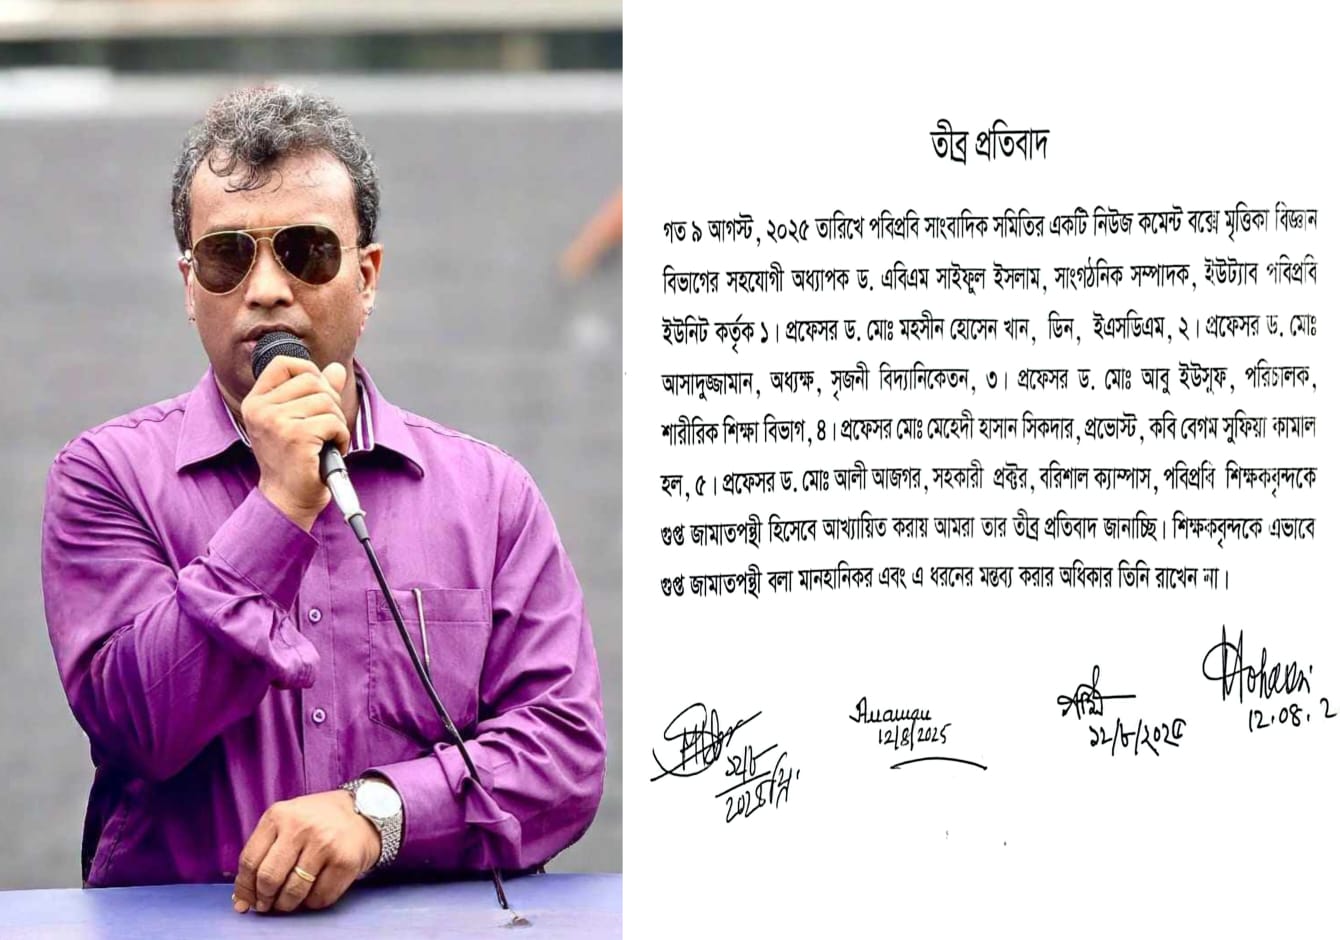 তীব্র প্রতিবাদ
গত ৯ আগস্ট, ২০২৫ তারিখে পবিপ্রবি সাংবাদিক সমিতির একটি নিউজ কমেন্ট বক্সে মৃত্তিকা বিজ্ঞান
বিভাগের সহযোগী অধ্যাপক ড. এবিএম সাইফুল ইসলাম, সাংগঠনিক সম্পাদক, ইউট্যাব পবিপ্রবি
ইউনিট কর্তৃক ১। প্রফেসর ড. মোঃ মহসীন হোসেন খান, ডিন, ইএসডিএম, ২। প্রফেসর ড. মোঃ
আসাদুজ্জামান, অধ্যক্ষ, সৃজনী বিদ্যানিকেতন, ৩। প্রফেসর ড. মোঃ আবু ইউসুফ, পরিচালক,
শারীরিক শিক্ষা বিভাগ, ৪। প্রফেসর মোঃ মেহেদী হাসান সিকদার, প্রভোস্ট, কবি বেগম সুফিয়া কামাল
হল, ৫। প্রফেসর ড. মোঃ আলী আজগর, সহকারী প্রক্টর, বরিশাল ক্যাম্পাস, পবিপ্রবি শিক্ষকবৃন্দকে
গুপ্ত জামাতপন্থী হিসেবে আখ্যায়িত করায় আমরা তার তীব্র প্রতিবাদ জানাচ্ছি। শিক্ষকবৃন্দকে এভাবে
গুপ্ত জামাতপন্থী বলা মানহানিকর এবং এ ধরনের মন্তব্য করার অধিকার তিনি রাখেন না।
12.08.2
12/8/2025
১২/৮/২০২৫